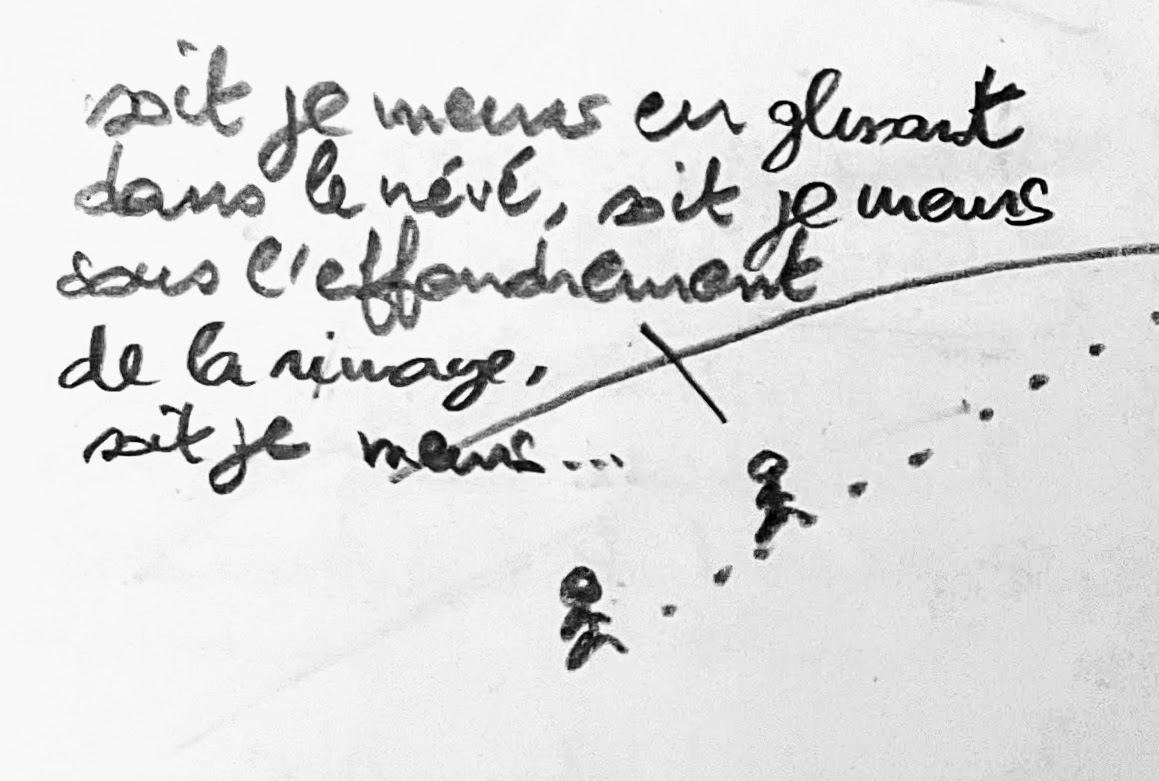 soit je meurs en glissant
dans le névé, soit je meurs
sous l'effondrement
de la rimaye,
soit je meurs...